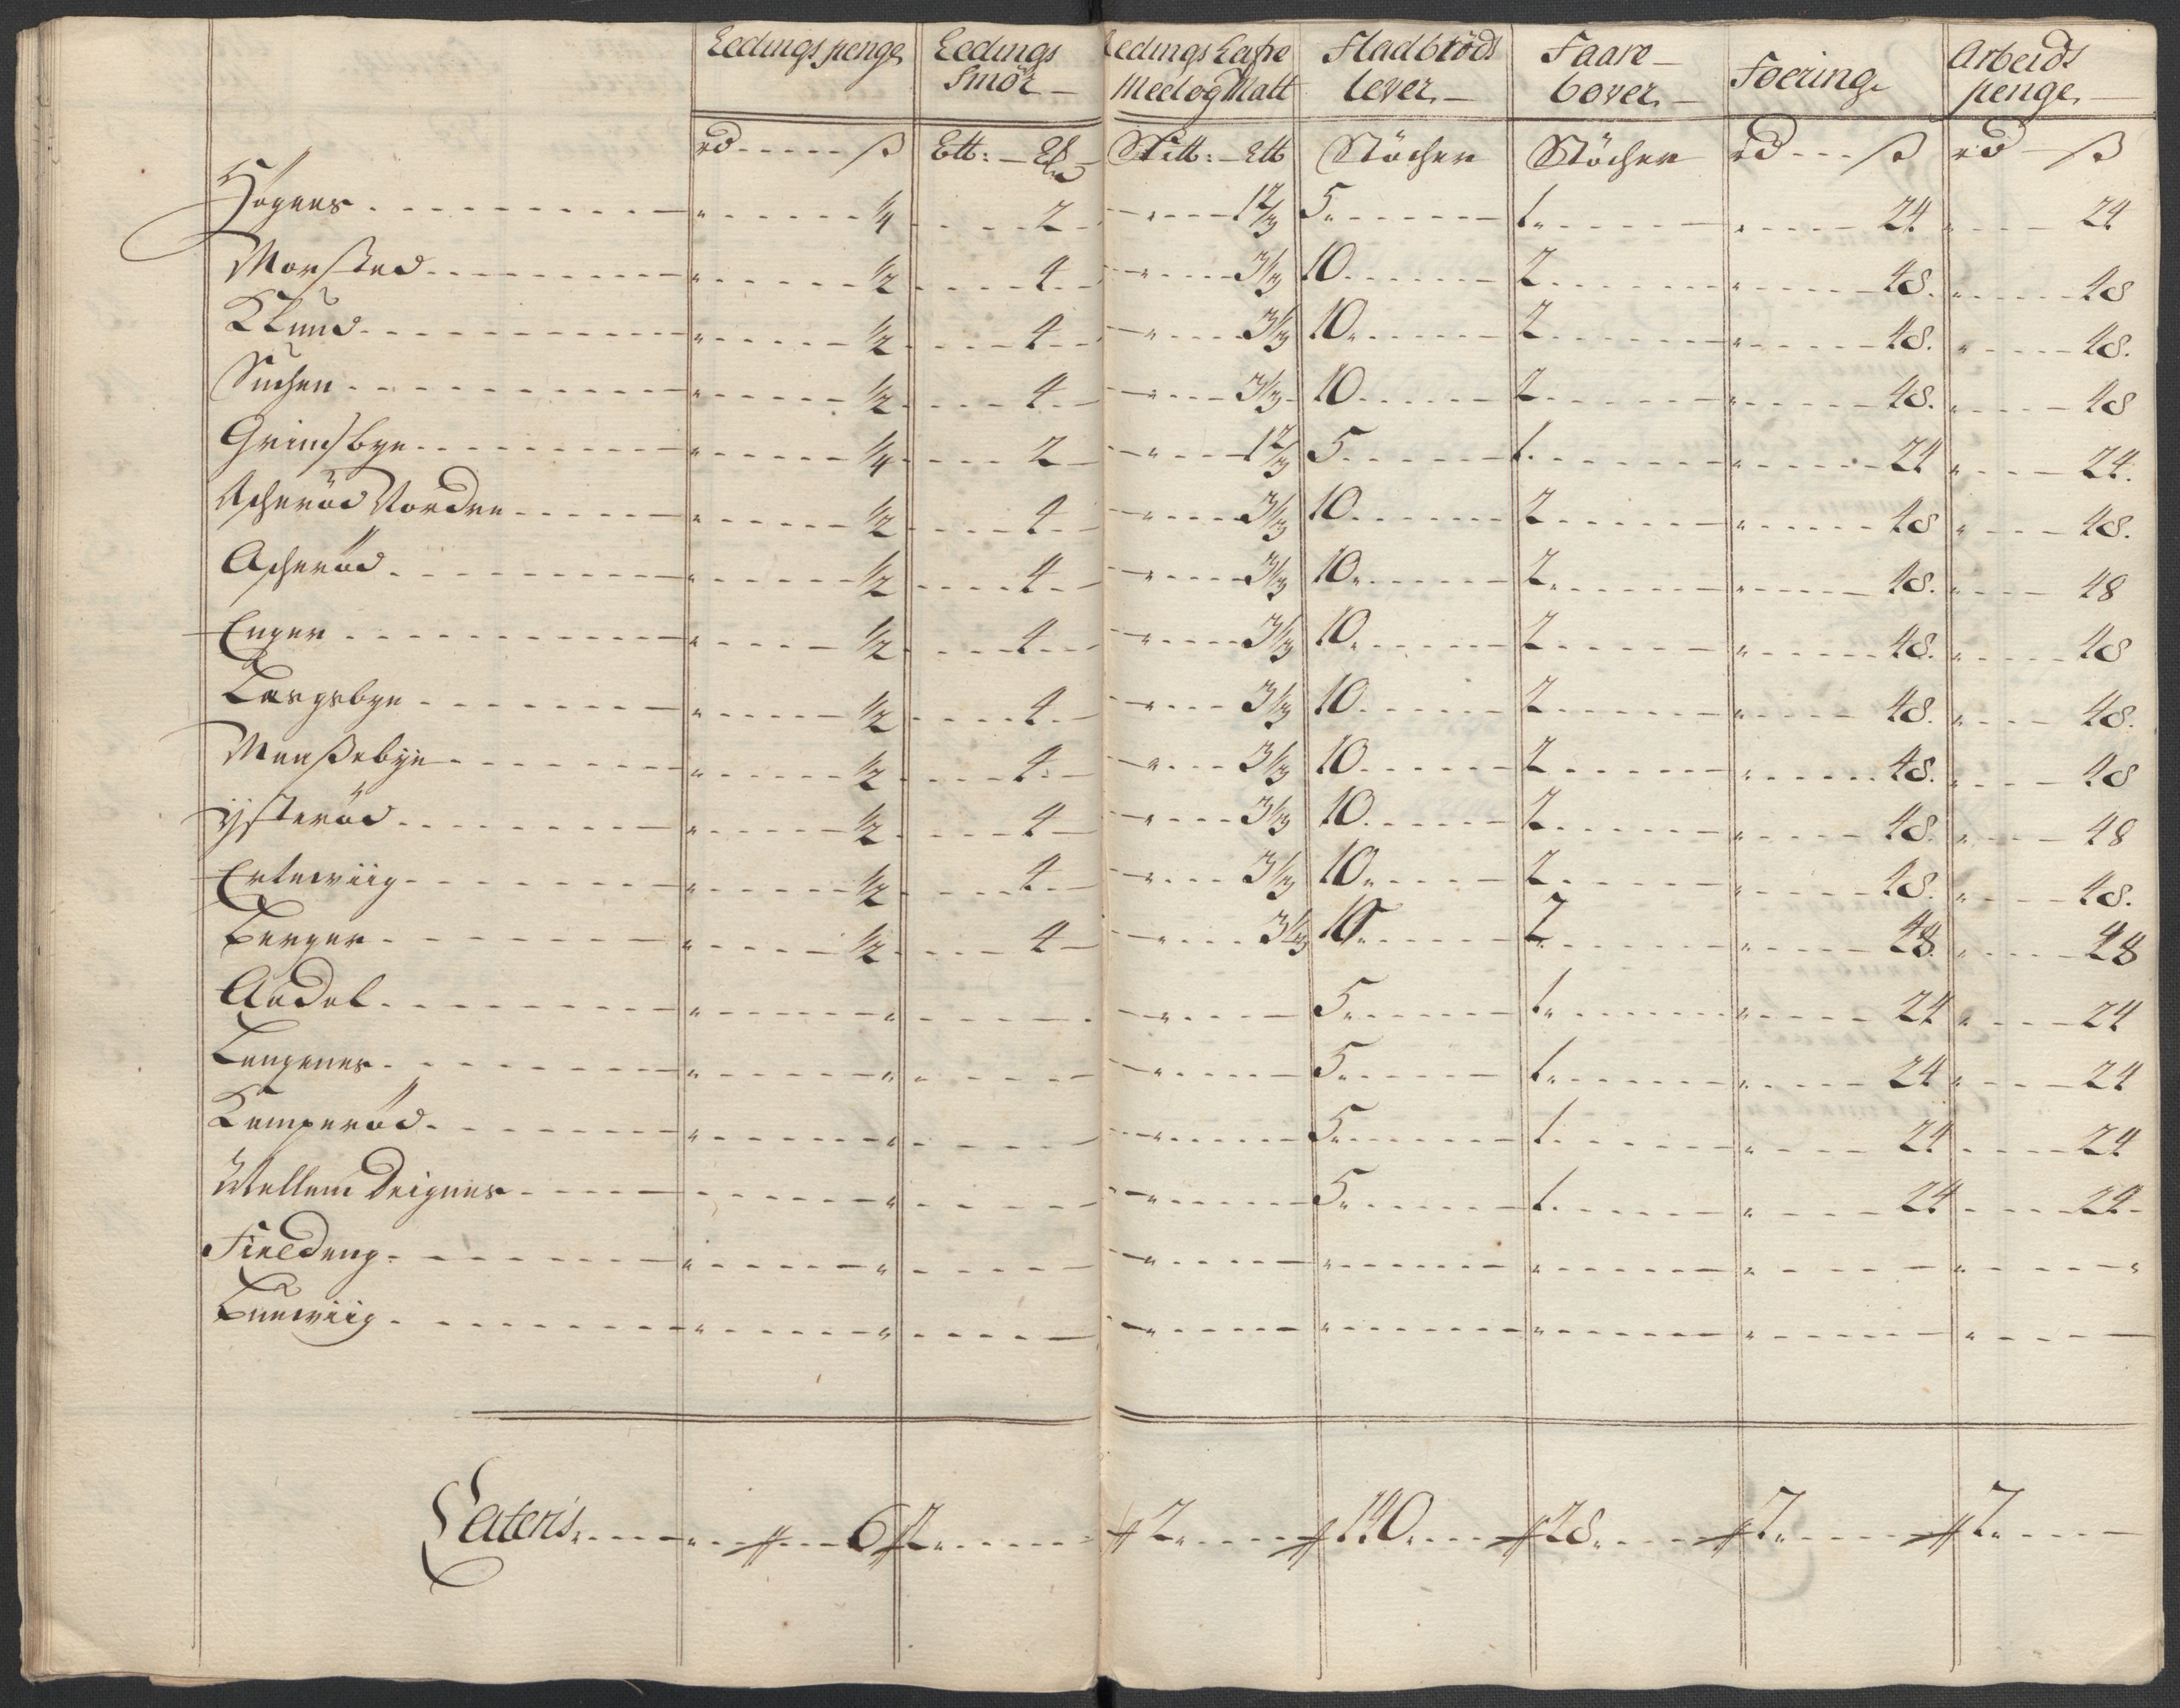 Ledings penge Ledings Smör Ledings Hafre Meel og Malt Fladbröds lever Faare bover Foering Arbeids penge
rd ß Stöcher Stöcher rd ß rd ß
Högnes 1/4 2 5 1 24 24
Morsted 1/2 4 3 1/3 10 2 48 48
Klund 1/2 4 3 1/3 10 2 48 48
1/2 4 3 1/3 10 2 48 48
Grimsbye 1/4 2 5 1 24 24
Acheröd Nordre 1/2 4 3 1/3 10 2 48 48
Acheröd 1/2 4 3 1/3 10 2 48 48
Enger 1/2 4 3 1/3 10 2 48 48
1/2 4 3 1/3 10 2 48 48
1/2 4 3 1/3 10 2 48 48
ysteröd 1/2 4 3 1/3 10 2 48 48
Ertewiig 1/2 4 3 1/3 10 2 48 48
Berger 1/2 4 3 1/3 10 2 48 48
Aadal 5 1 24 24
Langenes 5 1 24 24
Kamperöd 5 1 24 24
Mellem Deignes 5 1 24 24
Fieldeng
Buewiig
Lateris 6 2 2 140 28 7 7